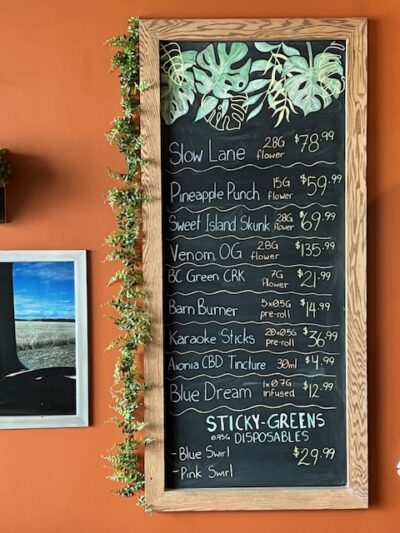 Slow Lane 28G flower $78.99
Pineapple Punch 15G flower $59.99
Sweet Island Skunk 28G flower $69.99
Venom OG 28G flower $135.99
BC Green CRK 7G flower $21.99
Barn Burner 5x0.5G pre-roll $14.99
Karaoke Sticks 28x0.5G pre-roll $36.99
Aionia CBD Tincture 30ml $4.99
Blue Dream 1x0.7G infused $12.99
STICKY-GREENS
0.95G DISPOSABLES
- Blue Swirl
- Pink Swirl $29.99